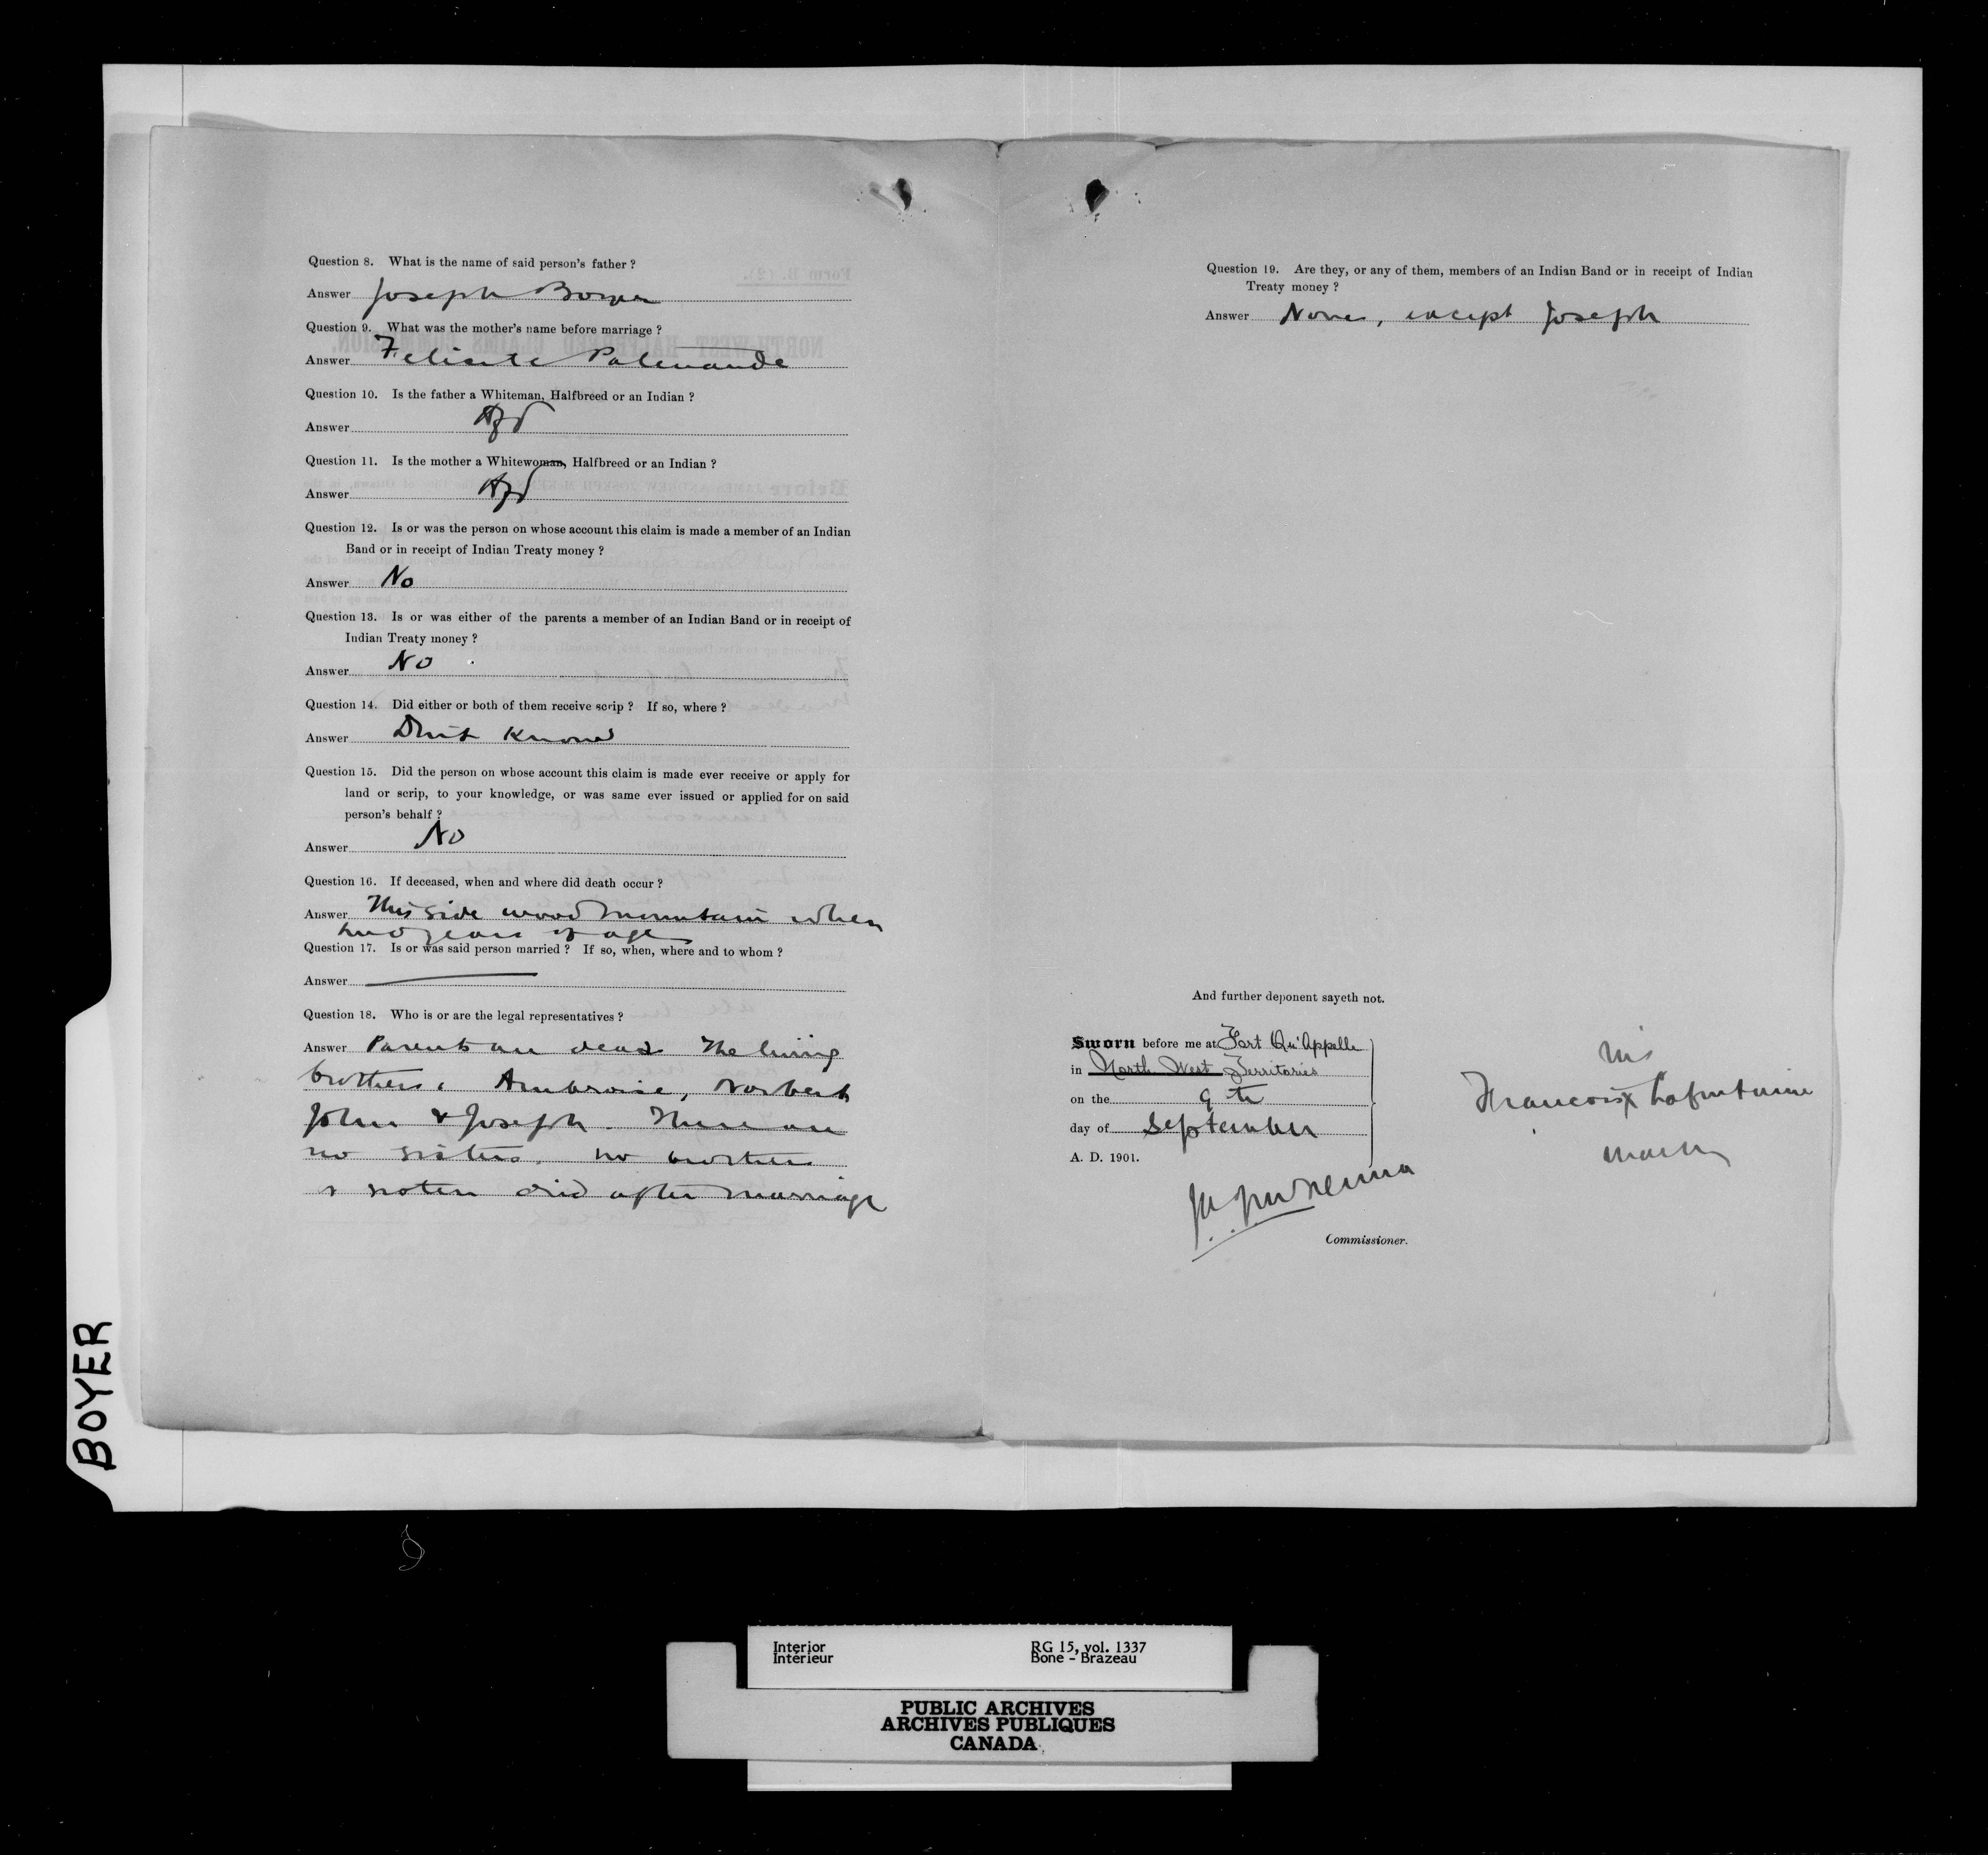 Question 8. What is the name of said person's father ?
Answer Joseph Boyer
Question 9. What was the mother's name before marriage ?
Answer Felicite Patenaude
Question 10. Is the father a Whiteman, Halfbreed or an Indian ?
Answer Hfd
Question 11. Is the mother a Whitewoman, Halfbreed or an Indian ?
Answer Hfd
Question 12. Is or was the person on whose account this claim is made a member of an Indian
Band or in receipt of Indian Treaty money ?
Answer No
Question 13. Is or was either of the parents a member of an Indian Band or in receipt of
Indian Treaty money ?
Answer No
Question 14. Did either or both of them receive scrip ? If so, where ?
Answer Dont Know
Question 15. Did the person on whose account this claim is made ever receive or apply for
land or scrip, to your knowledge, or was same ever issued or applied for on said
person's behalf ?
Answer No
Question 16. If deceased, when and where did death occur ?
Answer This side wood mountain when
two years of age
Question 17. Is or was said person married ? If so, when, where and to whom ?
Answer
Question 18. Who is or are the legal representatives ?
Answer Parents are dead The living
brothers, Ambroise, Norbert
John & Joseph. There are
no sisters. no brothers
& sisters died after marriage
Question 19. Are they, or any of them, members of an Indian Band or in receipt of Indian
Treaty money ?
Answer None, except Joseph
And further deponent sayeth not.
Sworn before me at Fort Qu'Appelle
in North West Territories
on the 9th
day of September
A. D. 1901.
Commissioner.
his
Francois X Lafontaine
mark
BOYER
Interior
Intérieur
RG 15, vol. 1337
Bone - Brazeau
PUBLIC ARCHIVES
ARCHIVES PUBLIQUES
CANADA